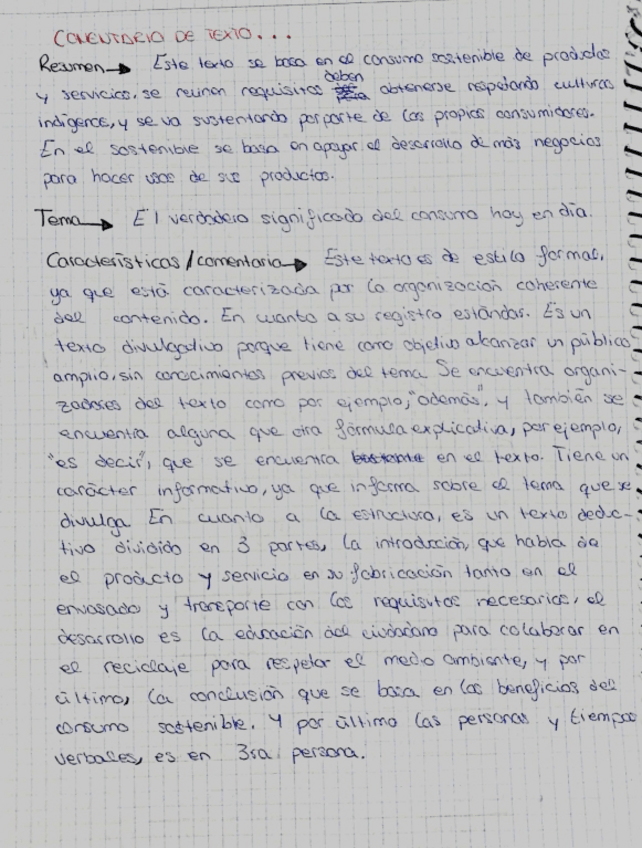 COMENTARIO DE TEXTO...
Resumen → Este texto se basa en el consumo sostenible de productos
y servicios, se reunen requisitos deben obtenerse respetando culturas
indigenas, y se va sustentando por parte de las propias consumidores.
En el sostenible se basa en apoyar el desarrollo de más negocios
para hacer usos de sus productos.
Tema → El verdadero significado del consumo hoy en dia.
Características/comentario → Este texto es de estilo formal,
ya que está caracterizada por la organización coherente
del contenido. En cuanto a su registro estándar. Es un
texto divulgativo porque tiene como objetivo alcanzar un público
amplio, sin conocimientos previos del tema. Se encuentra organi-
zadores del texto como por ejemplo, "además", y también se
encuentra alguna que otra fórmula explicativa, por ejemplo,
"es decir", que se encuentra en el texto. Tiene un
carácter informativo, ya que informa sobre el tema que se
divulga. En cuanto a la estructura, es un texto deduc-
tivo dividido en 3 partes, la introducción, que habla de
el producto y servicio en su fabricación tanto en el
envasado y transporte con los requisitos necesarios, el
desarrollo es la educación del ciudadano para colaborar en
el reciclaje para respetar el medio ambiente, y por
último, la conclusión que se basa en los beneficios del
consumo sostenible. Y por último las personas y tiempos
verbales, es en 3ra persona.